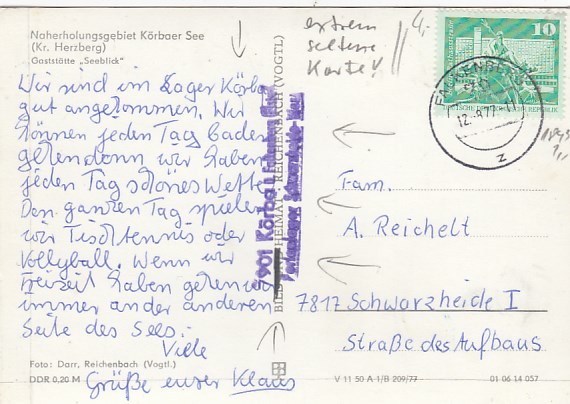 Naherholungsgebiet Körbaer See
(Kr. Herzberg)
Gaststätte „Seeblick"
Wir sind im Lager Körba
gut angekommen. Wir
können jeden Tag baden
gehen denn wir haben
jeden Tag schönes Wetter
Den ganzen Tag spielen
wir Tischtennis oder
Volleyball. Wenn wir
Freizeit haben gehen wir
immer an der anderen
Seite des Sees.
Viele
Grüße euer Klaus
Foto: Darr, Reichenbach (Vogtl.)
DDR 0,20 M
BILD UND HEIMAT · REICHENBACH (VOGTL)
7901 Körba
extrem
seltene
Karte!
4,-
10
12.-8.77.-11
z
Fam.
A. Reichelt
7817 Schwarzheide I
Straße des Aufbaus
V 11 50 A 1/B 209/77
01 06 14 057